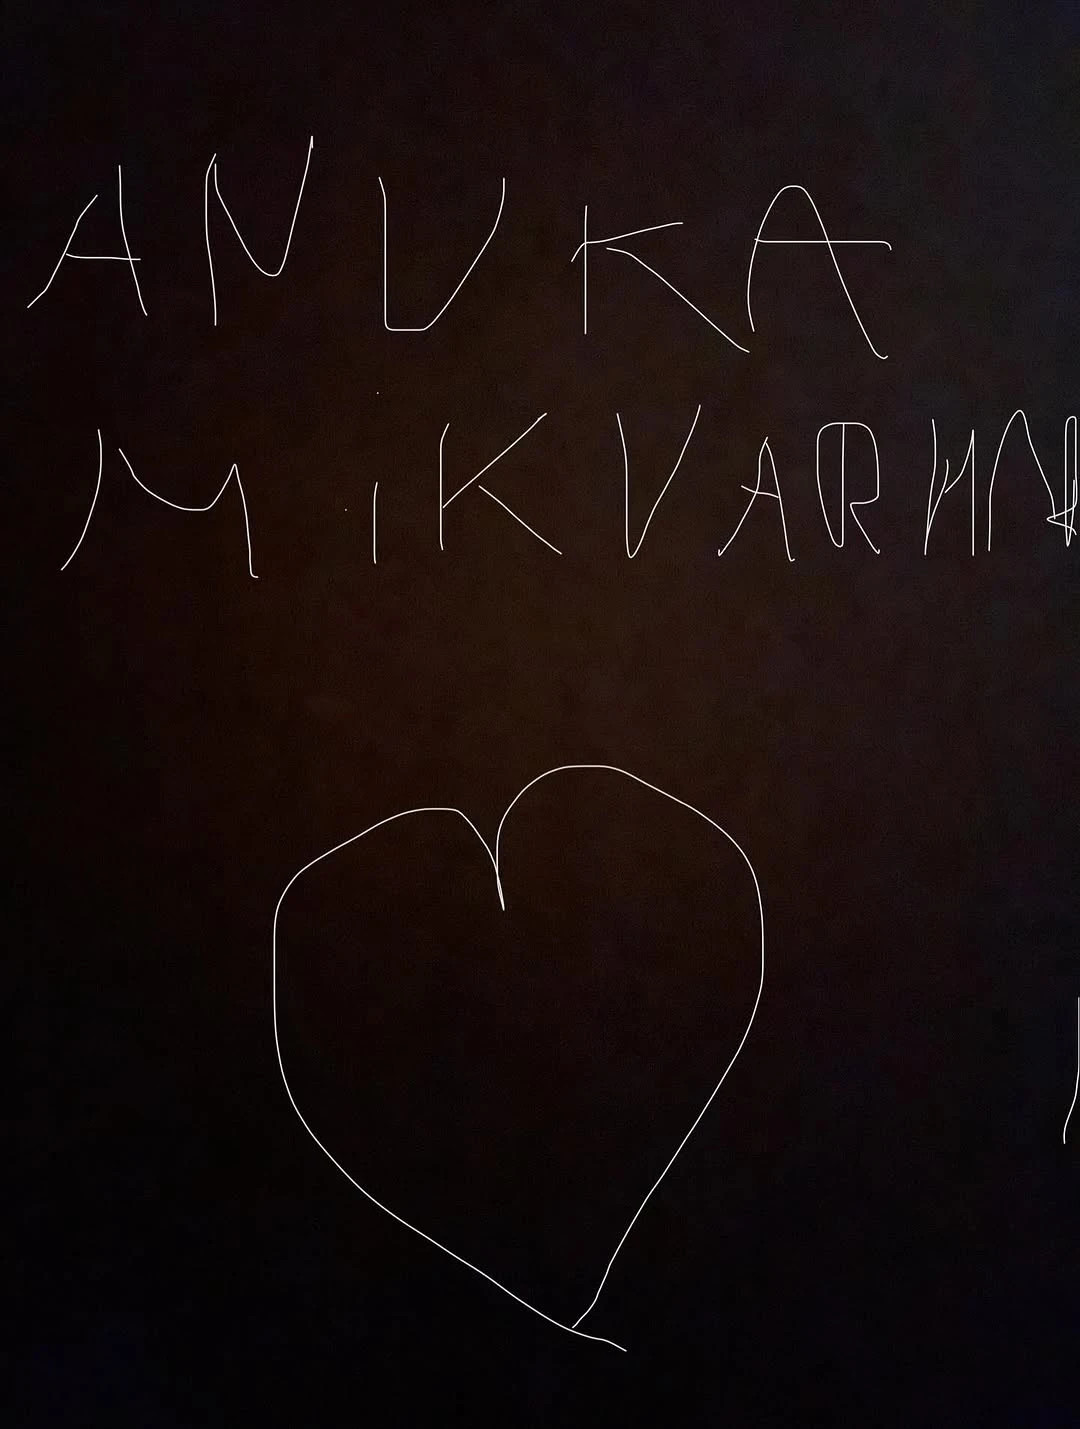 ANUKA
MiKVARHA